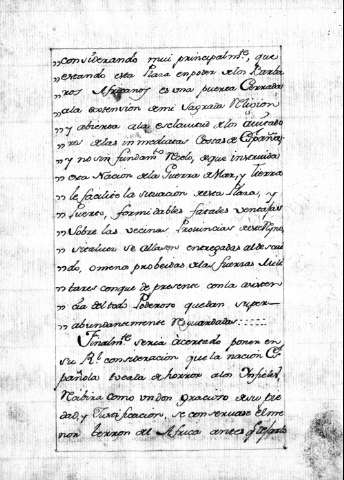 "considerando mui principalm.te, que
"estando esta Plaza en poder de los Barba
"ros Africanos es una puerta Cerrada
"a la extension de mi Sagrada Religion
"y abierta a la esclavitud de los
"de las inmediatas Costas de España,
"y no sin fundam.to
"esta Nacion de la Guerra de Mar, y tierra
"le facilite la situacion de esta Plaza, y
"Puerto, formidables fatales ventajas
"Sobre las vecinas Provincias
"si estas se allasen entregadas al descui
"do, o menos probeidas de las fuerzas Mili
"tares con que de presente con la asisten
"cia del todo Poderoso quedan super-
"abundantemente Resguardadas.
Finalm.te seria acertado poner en
su R.l consideracion que la nacion Es
pañola tocada de horror a los Infieles,
Recibira como un don gracioso de su pie
dad, y Justificacion, se conservase el me
nor terron del Africa antes